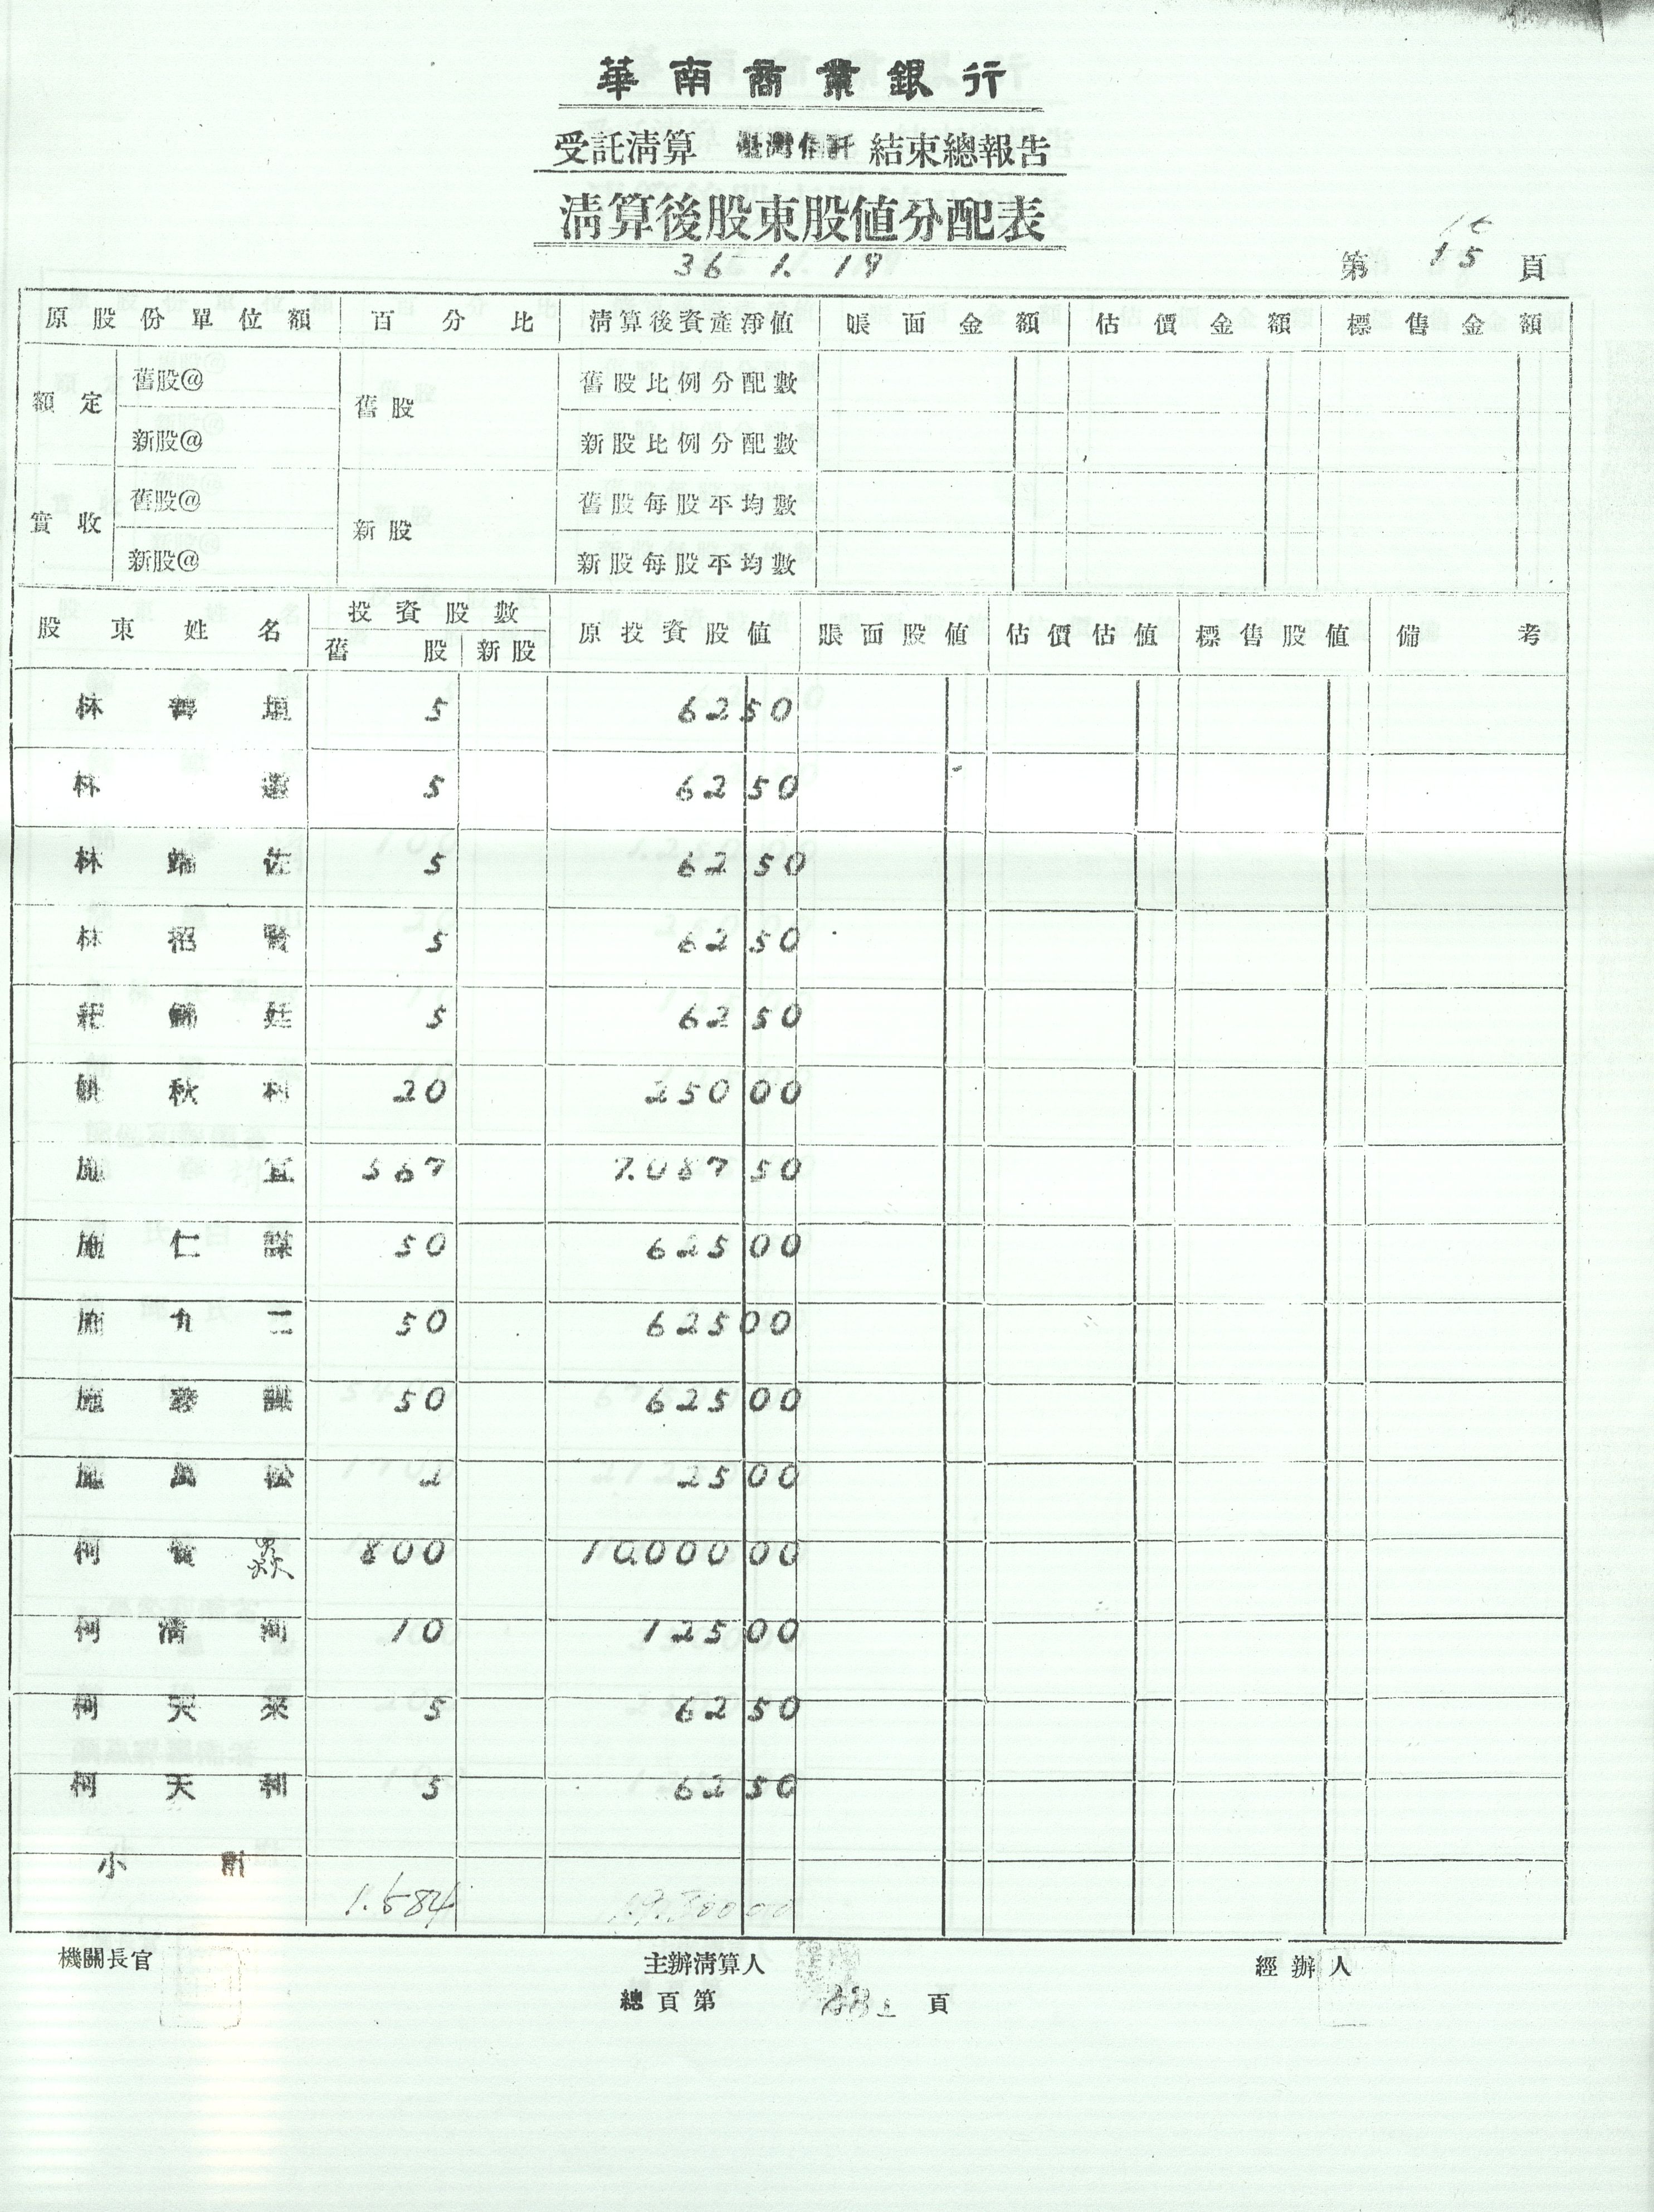 華南商業銀行
受託清算 臺灣信託 結束總報告
清算後股東股值分配表
36 1. 19
第 15 頁
原股份單位額 百分比 清算後資產淨值 賬面金額 估價金額 標售金額
額定 舊股@ 舊股 舊股比例分配數
新股@ 新股比例分配數
實收 舊股@ 新股 舊股每股平均數
新股@ 新股每股平均數
股東姓名 投資股數 原投資股值 賬面股值 估價估值 標售股值 備考
舊股 新股
林 5 62 50
林 5 62 50
林端佐 5 62 50
林招賢 5 62 50
5 62 50
秋 20 250 00
施宜 567 7.087 50
施仁謀 50 625 00
施九二 50 625 00
施 謀 50 625 00
施萬松 2 25 00
柯 800 10.000 00
柯清 10 125 00
柯天來 5 62 50
柯天利 5 62 50
小計
1.584 19.800 00
機關長官 主辦清算人 經辦人
總頁第 頁